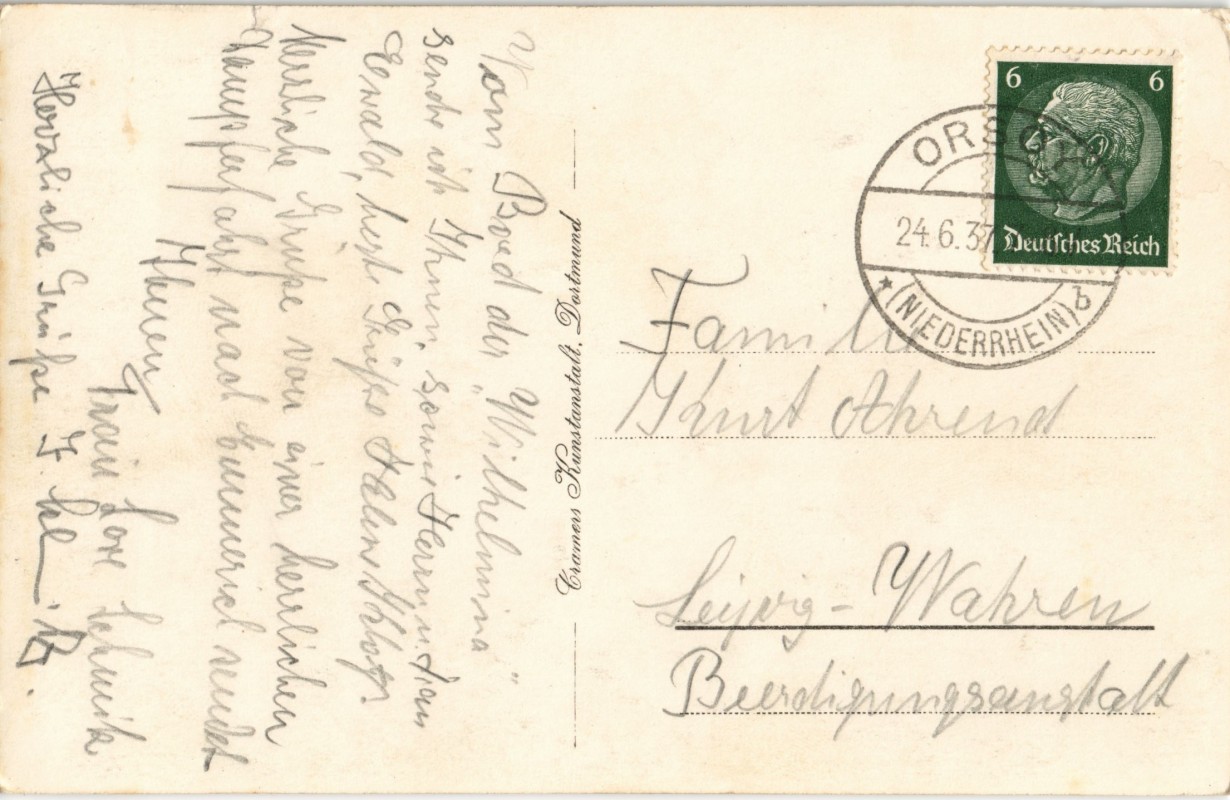 Vom Bord der „Wilhelmina"
sende ich Ihnen, sowie Herrn u. Frau
Ewald, herzl. Grüße Helm
Herzliche Grüße von einer herrlichen
Dampferfahrt nach Emmerich sendet
Ihnen
Frau Lore
Herzliche Grüße
Cramers Kunstanstalt, Dortmund
6 6
Deutsches Reich
ORSOY
24.6.37
(NIEDERRHEIN) b
Familie
Kurt Ahrend
Leipzig-Wahren
Beerdigungsanstalt